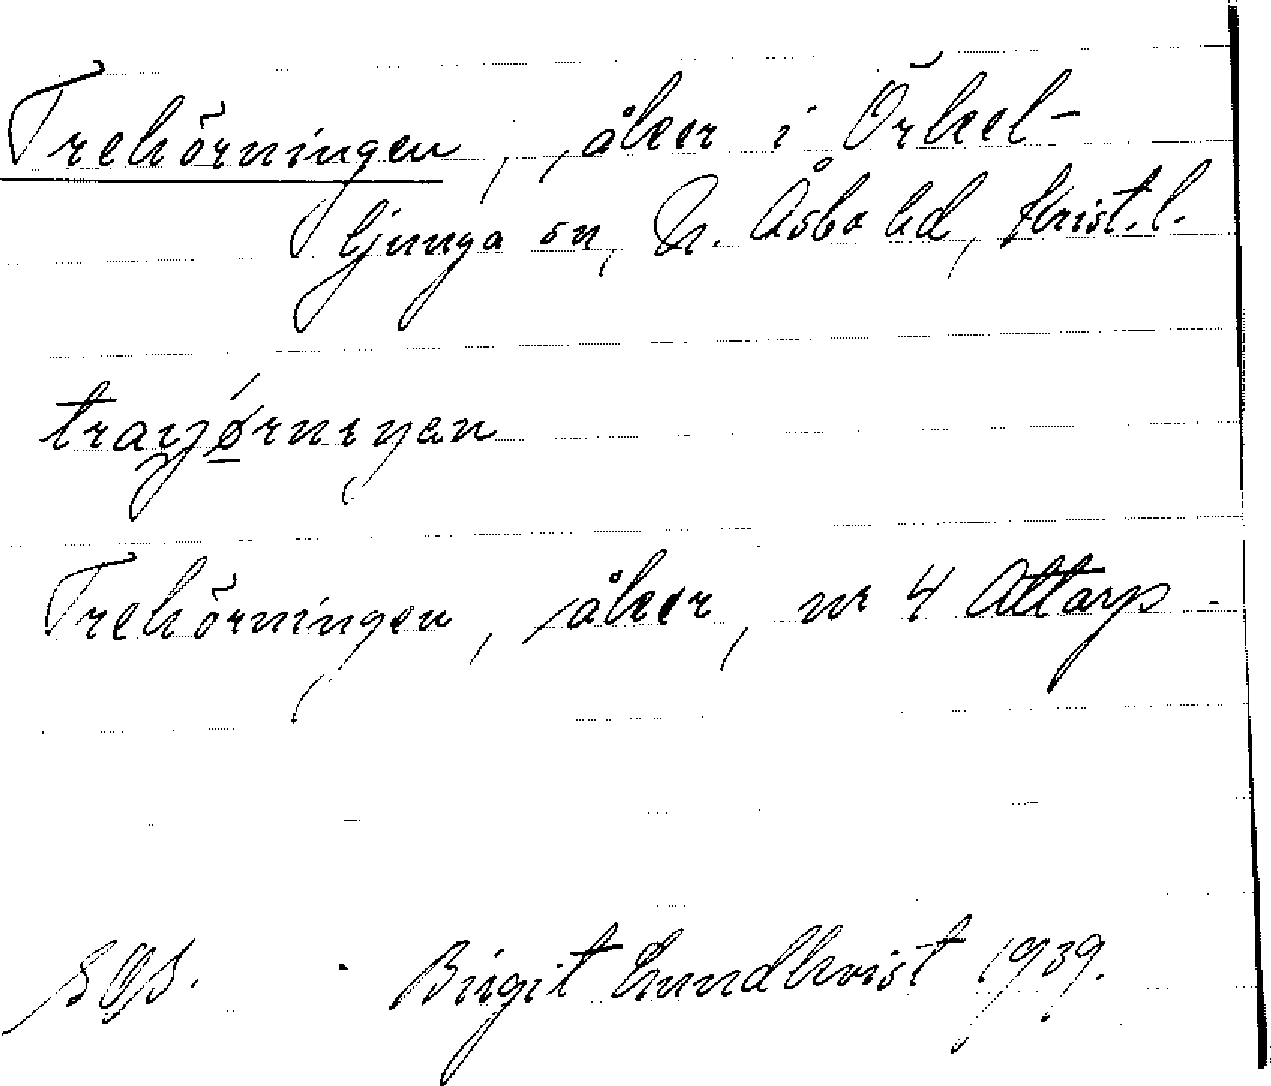 Trehörningen, åker i Örkel-
ljunga sn, N. Åsbo hd, Krist. l.
Trehörningen, åker, nr 4 Attarp
Birgit Lundkvist 1939.